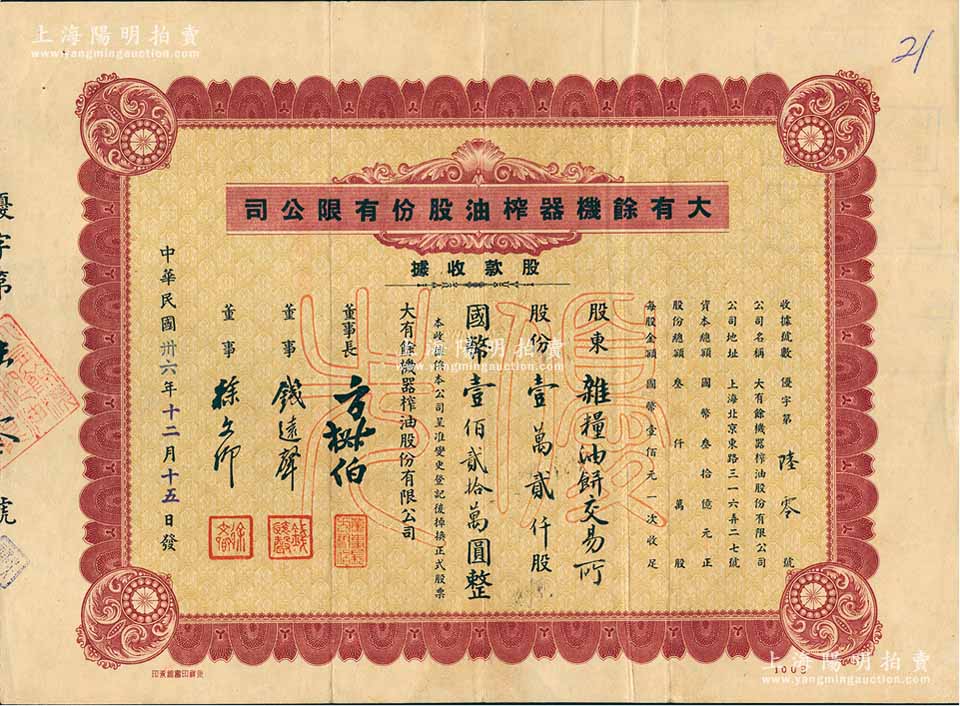 上海陽明拍賣
www.yangmingauction.com
21
大有餘機器榨油股份有限公司
股款收據
收據號數 優字第 陸零 號
公司名稱 大有餘機器榨油股份有限公司
公司地址 上海北京東路三一六弄二七號
資本總額 國幣叁拾億元正
股份總額 叁仟萬股
每股金額 國幣壹佰元一次收足
股東 雜糧油餅交易所
股份 壹萬貳仟股
國幣壹佰貳拾萬圓整
本收據俟本公司呈准變更登記後掉換正式股票
大有餘機器榨油股份有限公司
董事長 方椒伯
董事 錢遠聲
董事 徐文卿
中華民國卅六年十二月十五日發
優字第
零
號
上海陽明拍賣
www.yangmingauction.com